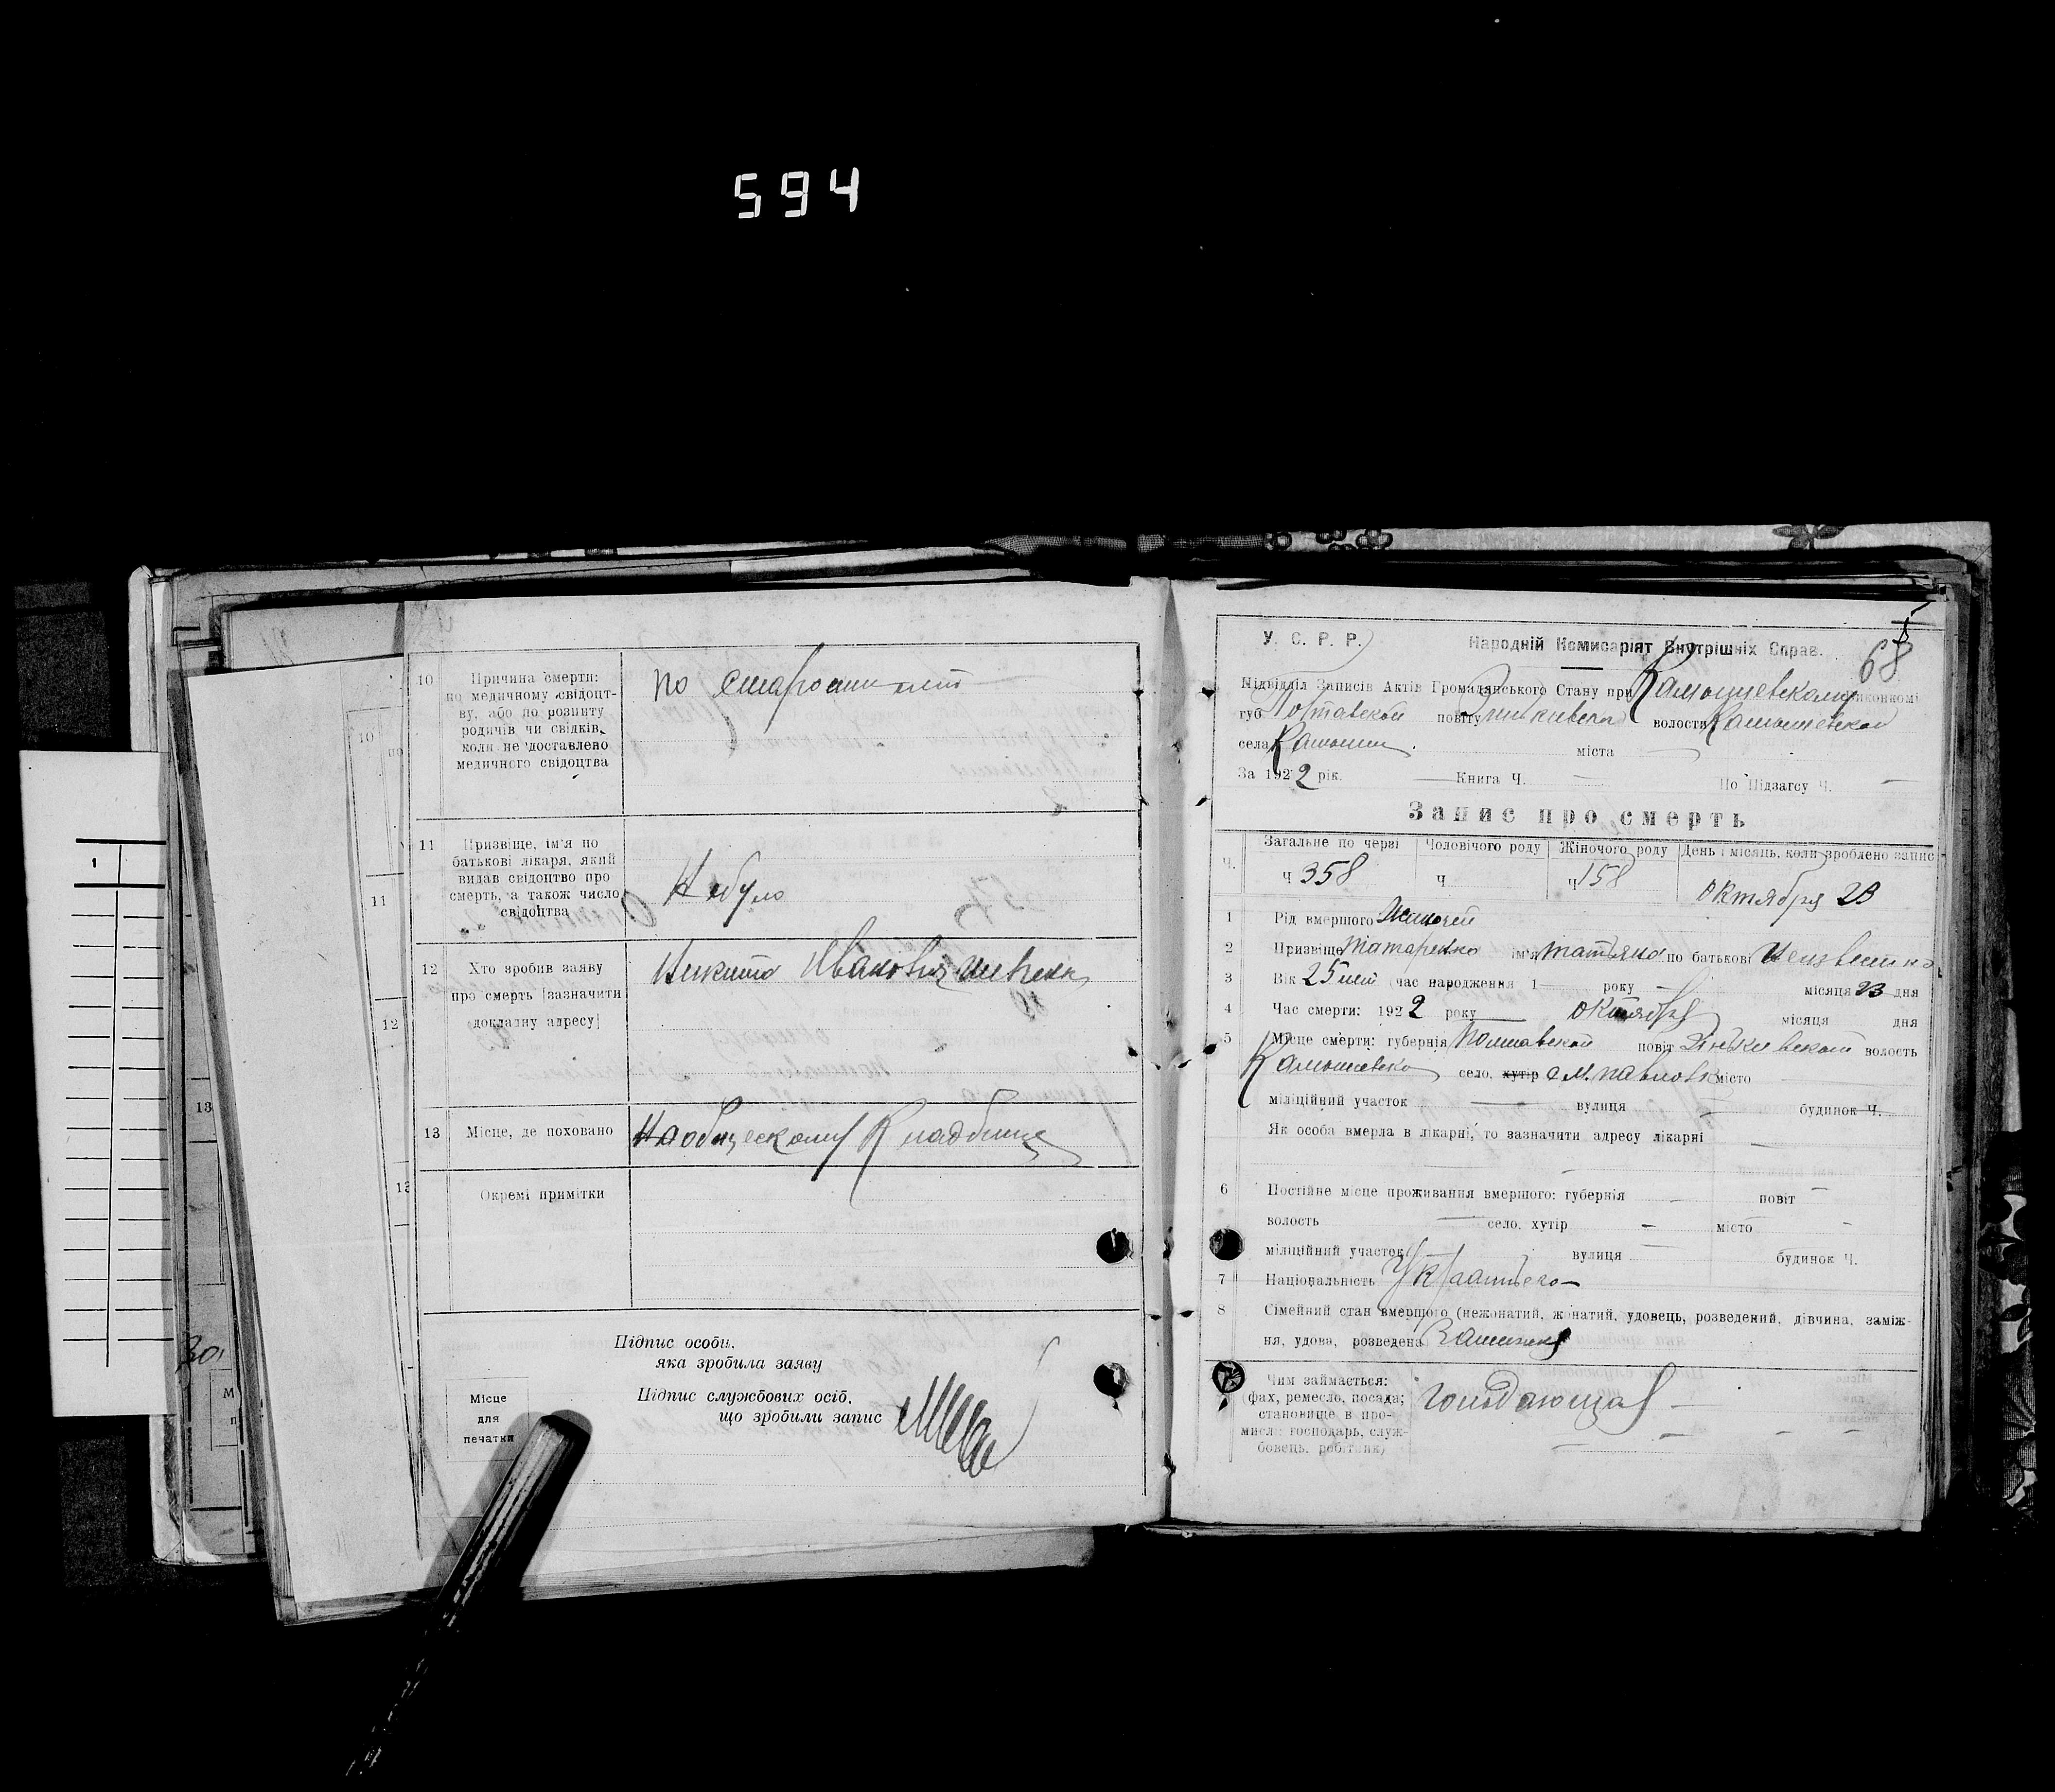 594
10 Причина смерти: по старости лет
по медичному свідоцт-
ву, або по розпиту
родичів чи свідків,
коли не доставлено
медичного свідоцтва
11 Призвіще, ім'я по
батькові лікаря, який
видав свідоцтво про
смерть, а також число
свідоцтва
Небуло
12 Хто зробив заяву
про смерть (зазначити
докладну адресу)
Никита Иванович
13 Місце, де поховано
На общескому Кладбище
Окремі примітки
Підпис особи,
яка зробила заяву
Підпис службових осіб,
що зробили запис
Місце
для
печатки
10
11
12
13
13
1
68
У. С. Р. Р.
Народній Комисаріят Внутрішніх Справ.
Підвідділ Записів Актів Громадянського Стану при Камышевскому виконкомі
губ Полтавской повіту Зинькивской волости Камышевской
села Камыши міста
За 1922 рік. Книга Ч. По Підзагсу Ч.
Запис про смерть
Ч. Загальне по черзі Чоловічого роду Жіночого роду День і місяць, коли зроблено запис
ч 358 ч ч 158 Октября 23
1 Рід вмершого Жиночей
2 Призвіще Татаренко ім'я Татьяна по батькові Неизвестно
3 Вік 25 лет (час народження 1 року місяця 23 дня
4 Час смерти: 1922 року октября місяця дня
5 Місце смерти: губернія Полтавской повіт Зіньківской волость
Камышевско село, хутір с М. Павловк місто
міліційний участок вулиця будинок Ч.
Як особа вмерла в лікарні, то зазначити адресу лікарні
6 Постійне місце проживання вмершого: губернія повіт
волость село, хутір місто
міліційний участок вулиця будинок Ч.
7 Національність
8 Сімейний стан вмершого (нежонатий, жонатий, удовець, розведений, дівчина, заміж-
ня, удова, розведена
Чим займається:
(фах, ремесло, посада;
становище в про-
мислі: господарь, служ-
бовець, робітник)